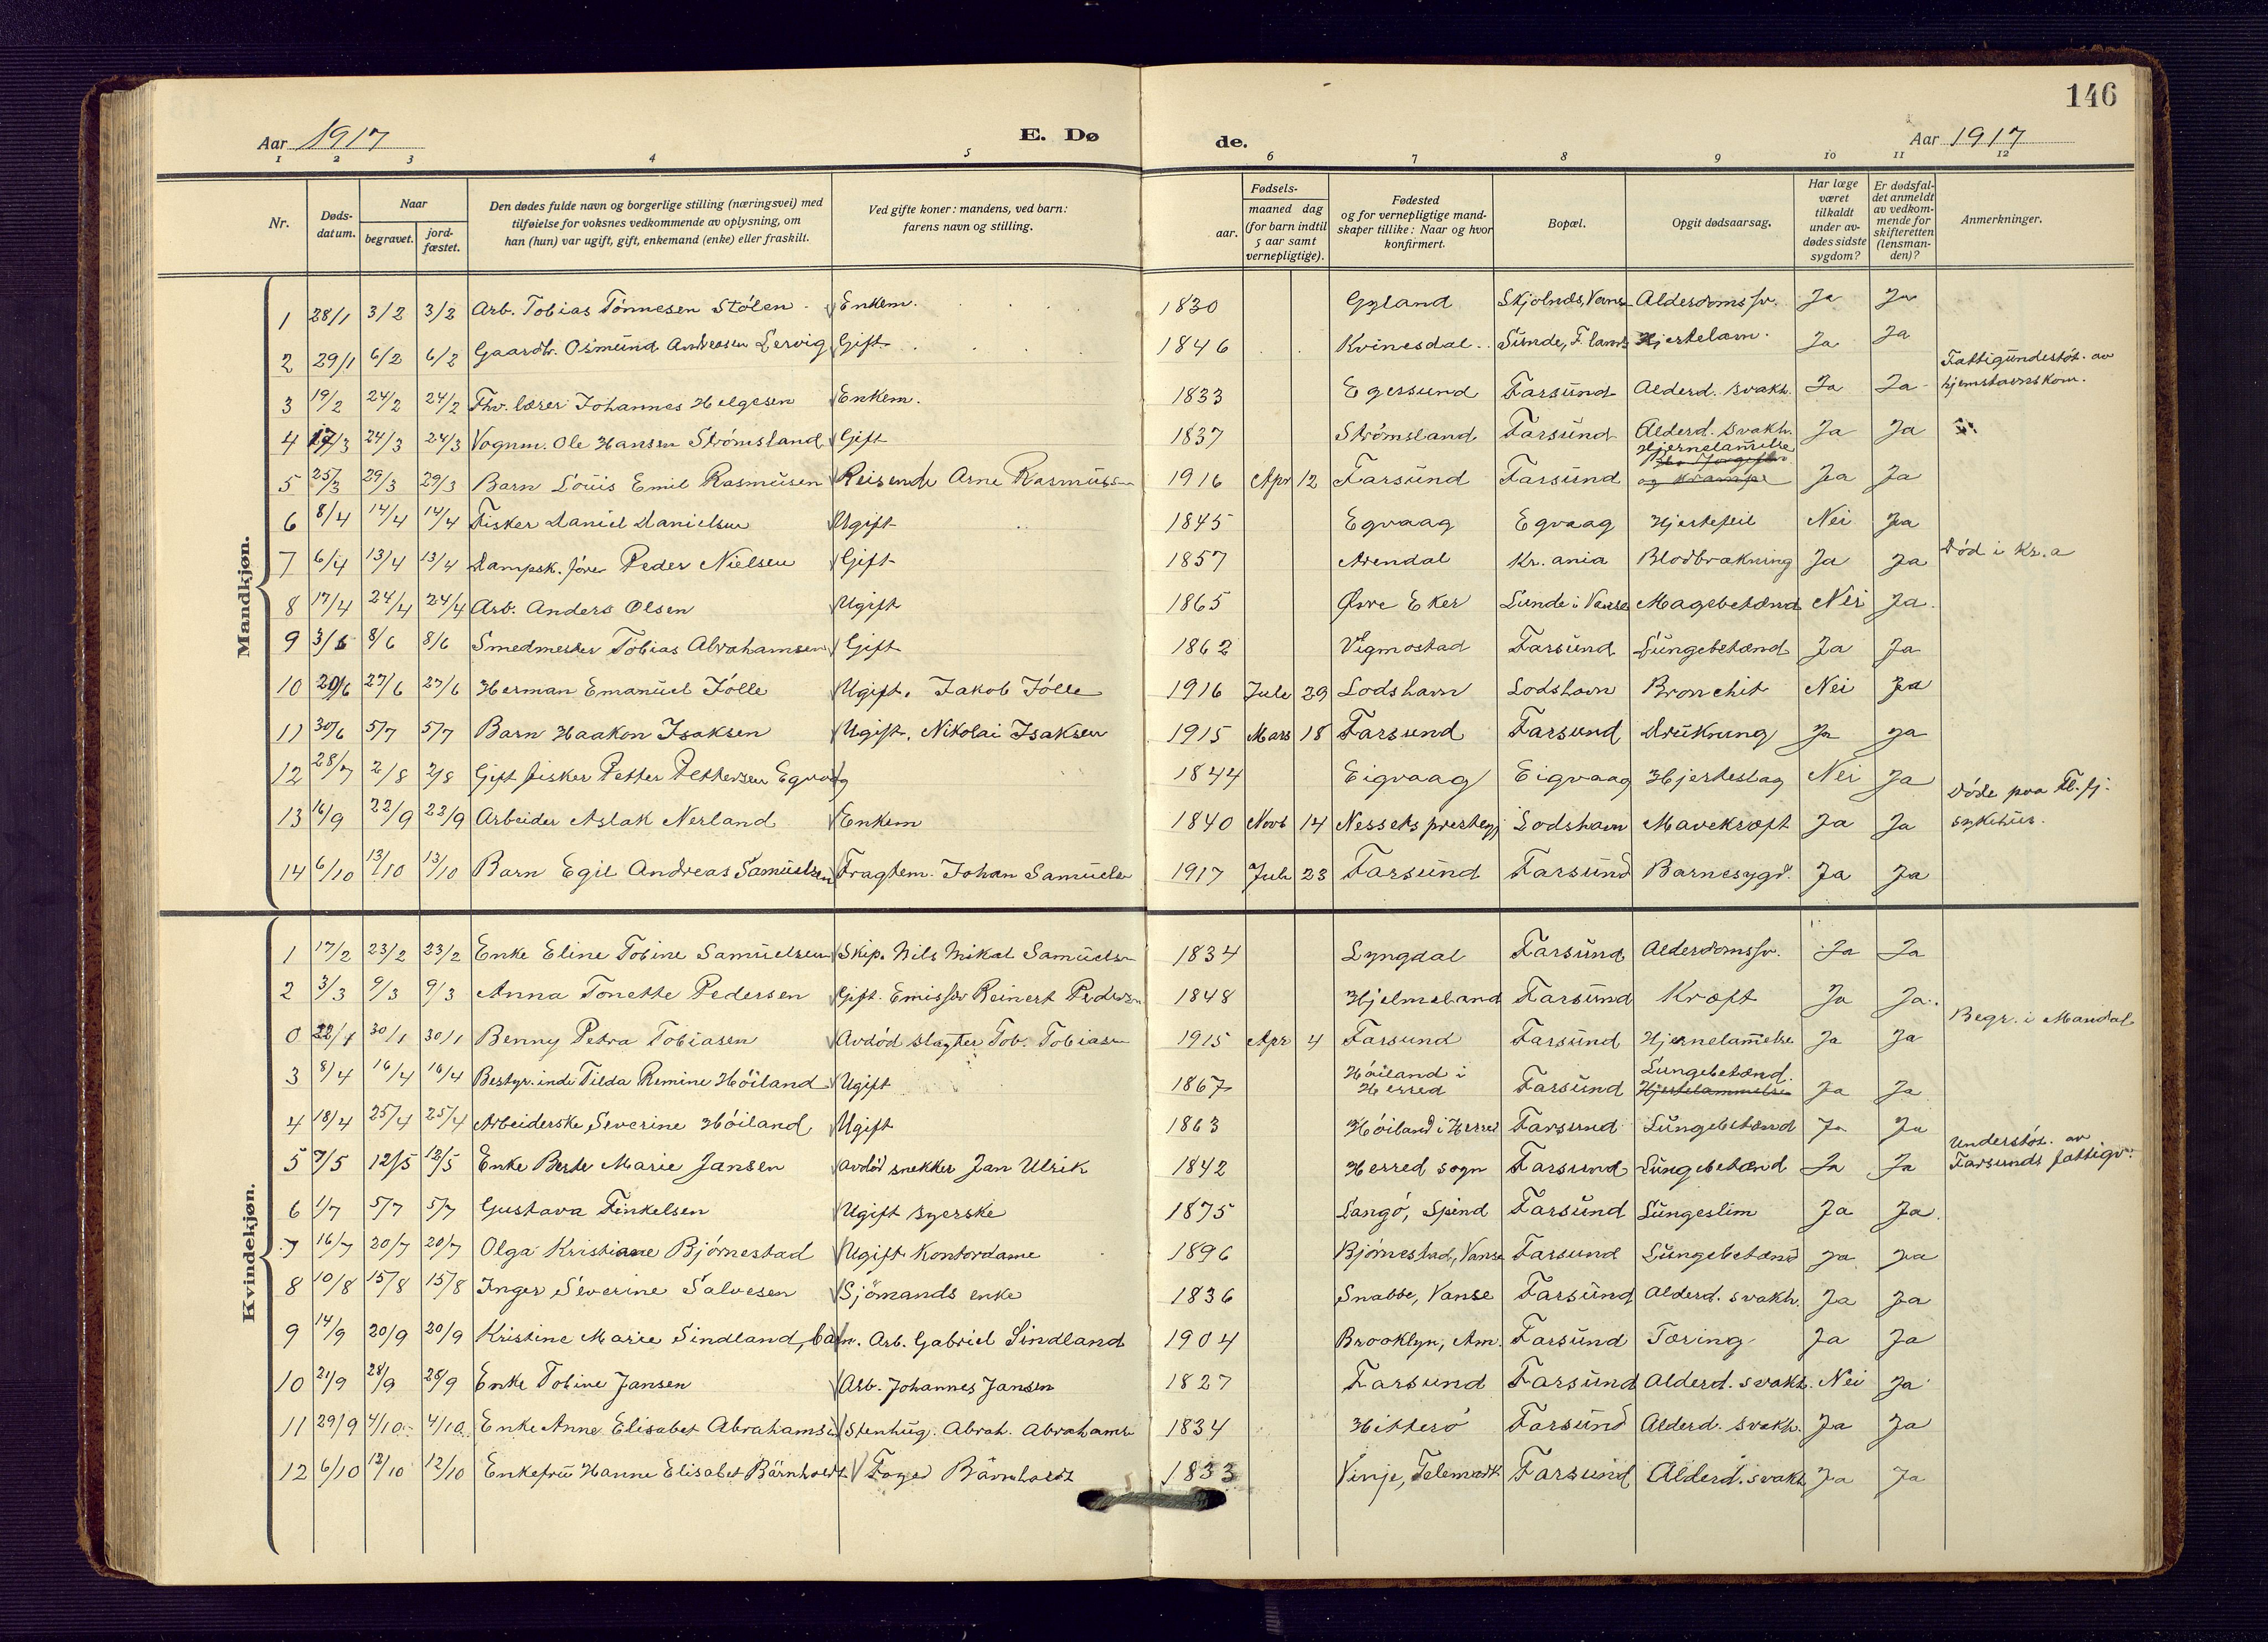 146
Aar 1917 E. Dø de. Aar 1917
1 2 3 4 5 6 7 8 9 10 11 12
Nr. Døds-datum. Naar begravet. jord-fæstet. Den dødes fulde navn og borgerlige stilling (næringsvei) med tilføielse for voksnes vedkommende av oplysning, om han (hun) var ugift, gift, enkemand (enke) eller fraskilt. Ved gifte koner: mandens, ved barn: farens navn og stilling. Fødsels- aar. maaned dag (for barn indtil 5 aar samt vernepligtige). Fødested og for vernepligtige mandskaper tillike: Naar og hvor konfirmert. Bopæl. Opgit dødsaarsag. Har læge været tilkaldt under avdødes sidste sygdom? Er dødsfaldet anmeldt av vedkommende for skifteretten (lensmanden)? Anmerkninger.
Mandkjøn.
1 28/1 3/2 3/2 Arb. Tobias Tönnesen Stölen Enkem. 1830 Gyland Skjolnds, Vanse Alderdomssv. Ja Ja
2 29/1 6/2 6/2 Gaardbr. Osmund Andreasen Lervig Gift 1846 Kvinesdal Sunde, F. lands Hjertelam. Ja Ja
3 19/2 24/2 24/2 Fhv. lærer Johannes Helgesen Enkem. 1833 Egersund Farsund Alderd. svakh. Ja Ja Fattigunderstöt. av hjemstavnskom.
4 17/3 24/3 24/3 Vognm. Ole Hansen Strömsland Gift 1837 Strömsland Farsund Alderd. svakh. Ja Ja
5 25/3 29/3 29/3 Barn Louis Emil Rasmusen Reisende Arne Rasmussen 1916 Apr 12 Farsund Farsund Hjernelamelse og krampe Ja Ja
6 8/4 14/4 14/4 Fisker Daniel Danielsen Ugift 1845 Egvaag Egvaag Hjertefeil Nei Ja
7 6/4 13/4 13/4 Dampsk. förer Peder Nielsen Gift 1857 Arendal Kr.ania Blodbrækning Ja Ja Död i Kr.a
8 17/4 24/4 24/4 Arb. Anders Olsen Ugift 1865 Øvre Eker Lunde i Vanse Magebetænd Nei Ja.
9 3/6 8/6 8/6 Smedmester Tobias Abrahamsen Gift 1862 Vegmostad Farsund Lungebetænd Ja Ja
10 20/6 27/6 27/6 Herman Emanuel Jölle Ugift. Jakob Jölle 1916 Juli 29 Lodshavn Lodshavn Bronchit Nei Ja
11 30/6 5/7 5/7 Barn Haakon Isaksen Ugift. Nikolai Isaksen 1915 Mars 18 Farsund Farsund Drukning Ja Ja
12 28/7 2/8 2/8 Gift fisker Petter Pettersen Egvaag 1844 Eigvaag Eigvaag Hjerteslag Nei Ja
13 16/9 22/9 22/9 Arbeider Aslak Nerland Enkem 1840 Novb 14 Nessets prestegj Lodshavn Mavekræft Ja Ja Döde paa Fl.fj. sykehus.
14 6/10 13/10 13/10 Barn Egil Andreas Samuelsen Fragtem. Johan Samuels 1917 Juli 23 Farsund Farsund Barnesygd. Ja Ja
Kvindekjøn.
1 17/2 23/2 23/2 Enke Eline Tobine Samuelsen Skip. Nils Mikal Samuelsen 1834 Lyngdal Farsund Alderdomssv. Ja Ja
2 3/3 9/3 9/3 Anna Tonette Pedersen Gift. Emissær Reinert Pedersen 1848 Hjelmeland Farsund Kræft Ja Ja.
0 22/1 30/1 30/1 Benny Petra Tobiasen Avdöd slagter Tob. Tobiasen 1915 Apr 4 Farsund Farsund Hjernelamelse Ja Ja Begr. i Mandal
3 8/4 16/4 16/4 Bestyr.inde Tilda Remine Höiland Ugift 1867 Höiland i Herred Farsund Lungebetænd. Hjertelammelse Ja Ja
4 18/4 25/4 25/4 Arbeiderske Severine Höiland Ugift 1863 Höiland i Herred Farsund Lungebetænd Ja Ja
5 7/5 12/5 12/5 Enke Berte Marie Jansen Avdöd snekker Jan Ulrik 1842 Herred sogn Farsund Lungebetænd Ja Ja Understöt. av Farsunds fattigv.
6 1/7 5/7 5/7 Gustava Finkelsen Ugift syerske 1875 Langö, Spind Farsund Lungeslim Ja Ja.
7 16/7 20/7 20/7 Olga Kristiane Björnestad Ugift Kontordame 1896 Björnestad, Vanse Farsund Lungebetænd Ja Ja
8 10/8 15/8 15/8 Inger Severine Salvesen Sjömands enke 1836 Snabbe, Vanse Farsund Alderd. svakh. Ja Ja
9 14/9 20/9 20/9 Kristine Marie Sindland, barn. Arb. Gabriel Sindland 1904 Brooklyn, Am. Farsund Tæring Ja Ja
10 21/9 28/9 28/9 Enke Tobine Jansen Arb. Johannes Jansen 1827 Farsund Farsund Alderd. svakh. Nei Ja
11 29/9 4/10 4/10 Enke Anne Elisabet Abrahamsen Stenhug. Abrah. Abrahams 1834 Hitterö Farsund Alderd. svakh. Ja Ja
12 6/10 12/10 12/10 Enkefru Hanne Elisabet Bärnholdt Foged Bärnholdt 1833 Vinje, Telemark Farsund Alderd. svakh Ja Ja